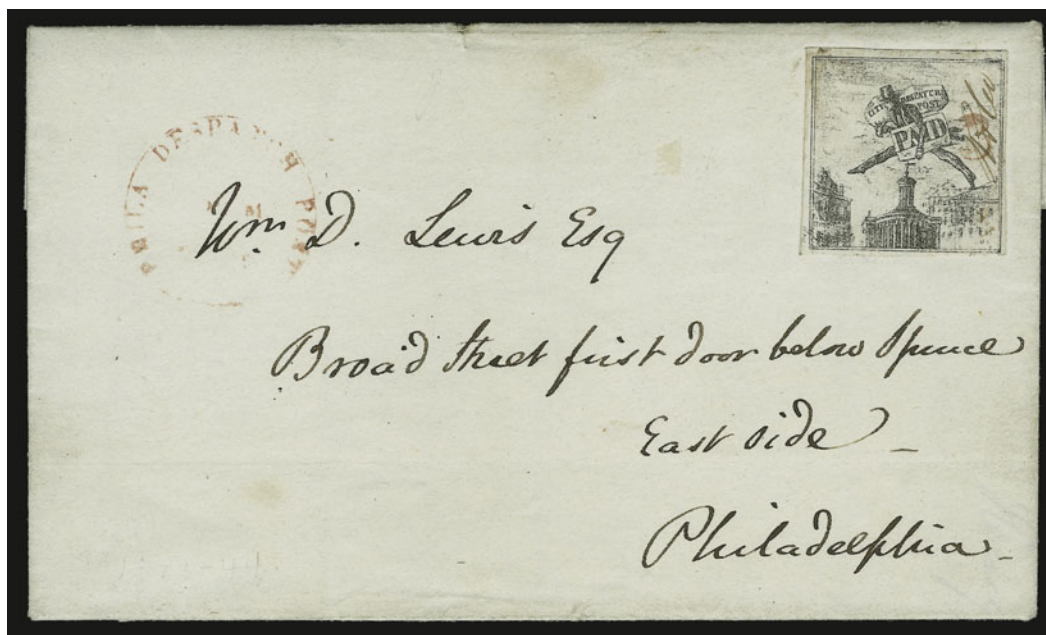 PHILA DESPATCH POST
CITY DESPATCH
POST
PMD
Wm D. Lewis Esq
Broad Street first door below Spruce
East side
Philadelphia